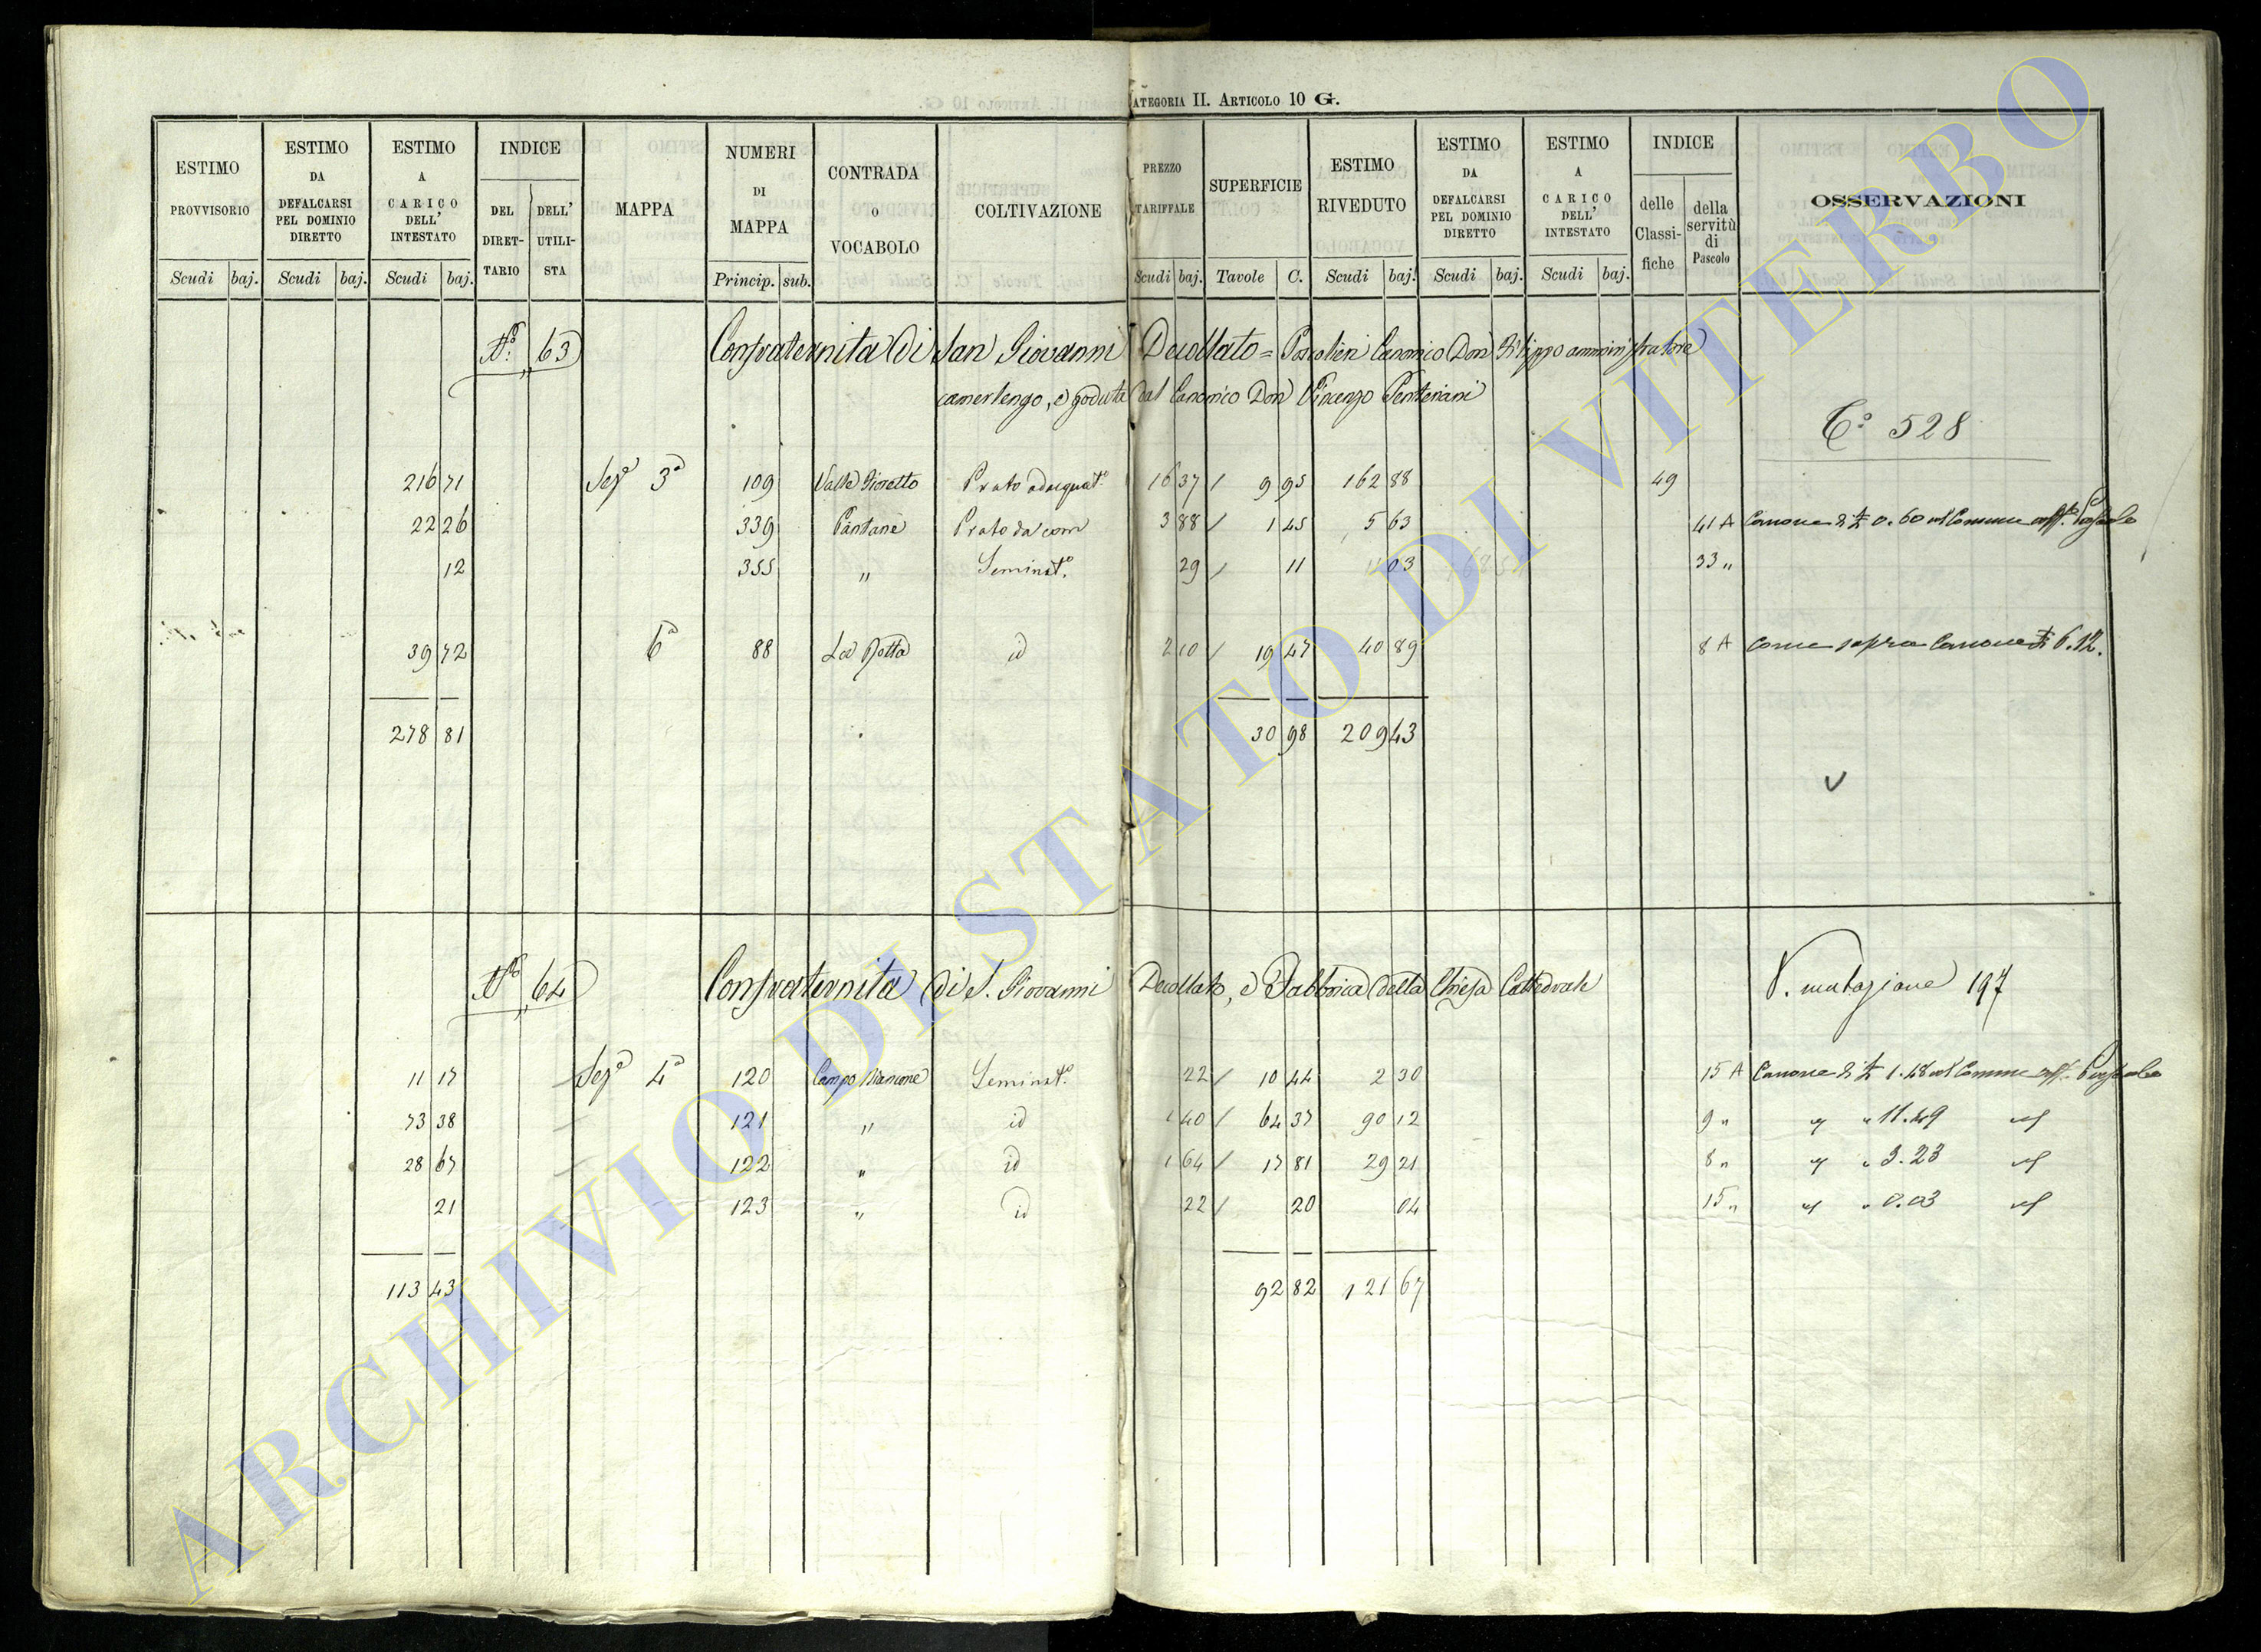 CATEGORIA II. ARTICOLO 10 G.
ESTIMO PROVVISORIO
ESTIMO DA DEFALCARSI PEL DOMINIO DIRETTO
ESTIMO A CARICO DELL' INTESTATO
INDICE
DEL DIRET-TARIO
DELL' UTILI-STA
MAPPA
NUMERI DI MAPPA
CONTRADA O VOCABOLO
COLTIVAZIONE
PREZZO TARIFFALE
SUPERFICIE
ESTIMO RIVEDUTO
ESTIMO DA DEFALCARSI PEL DOMINIO DIRETTO
ESTIMO A CARICO DELL' INTESTATO
INDICE
delle Classi-fiche
della servitù di Pascolo
OSSERVAZIONI
Scudi baj. Scudi baj. Scudi baj. Princip. sub. Scudi baj. Tavole C. Scudi baj. Scudi baj. Scudi baj.
N.º 63 Confraternita di San Giovanni Decollato = Canonico Don Filippo amministratore
camerlengo, e goduta dal Canonico Don Vincenzo
C.º 528
216 71 Sez.e 3ª 109 Valle Prato adacquat.º 16 37 / 9 95 162 88 49
22 26 339 Pantane Prato da com 3 88 / 1 45 5 63 41 A Canone di 0.60 al Comune aff.º Pascolo
12 355 " Seminat.º 29 / 11 03 33 "
39 72 6ª 88 La id 2 10 / 19 47 40 89 8 A Come sopra Canone di 6.12.
278 81 30 98 209 43
V
N.º 64 Confraternita di S. Giovanni Decollato, e Fabbrica della Chiesa Cattedrale
V. mutazione 197
11 17 Sez.e 4ª 120 Campo Seminat.º 22 / 10 44 2 30 15 A Canone di 1.48 al Comune aff.º Pascolo
73 38 121 " id 1 40 / 64 37 90 12 9 " " " 11.49
28 67 122 " id 1 64 / 17 81 29 21 8 " " " 3.23
21 123 " id 22 / 20 04 15 " " " 0.03
113 43 92 82 121 67
ARCHIVIO DI STATO DI VITERBO